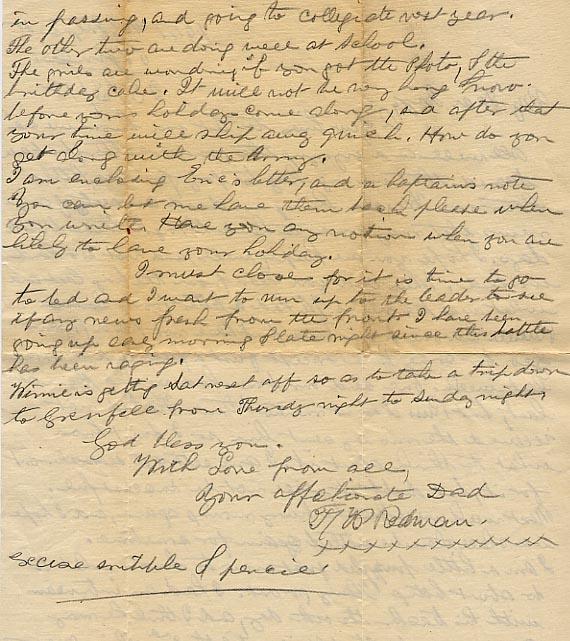 in passing, and going to collegiate next year.
The other two are doing well at school.
The girls are wondering if you got the Photo, & the
birthday cake. It will not be very long now
before your holiday come along, and after that
your time will slip away quick. How do you
get along with the Army.
I am enclosing Eric's letter, and a Captains note
you can let me have them back please when
you write. Have you any notion when you are
likely to have your holiday.
I must close for it is time to go
to bed and I want to run up to the leader to see
if any news fresh from the front I have been
going up early morning & late night since this battle
has been raging.
Winnie is getting Sat next off so as to take a trip down
to Grenfell from Thursday night to Sunday night,
God bless you.
With Love from all,
Your affectionate Dad
Redman.
xxxxxxxxxxxx
excuse scribble & pencil